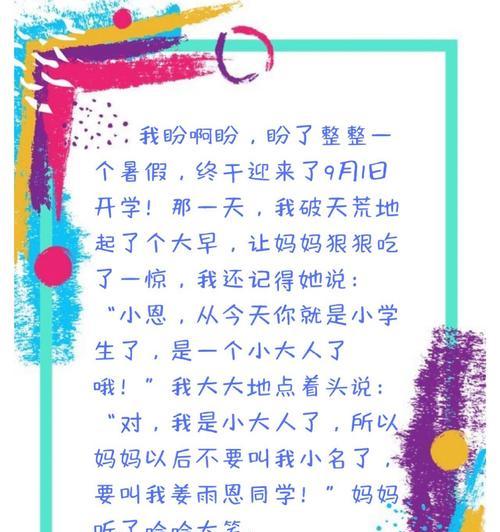 我盼啊盼，盼了整整一
个暑假，终于迎来了9月1日
开学！那一天，我破天荒地
起了个大早，让妈妈狠狠吃
了一惊，我还记得她说：
“小恩，从今天你就是小学
生了，是一个小大人了
哦！”我大大地点着头说：
“对，我是小大人了，所以
妈妈以后不要叫我小名了，
要叫我姜雨恩同学！”妈妈
听了哈哈大笑